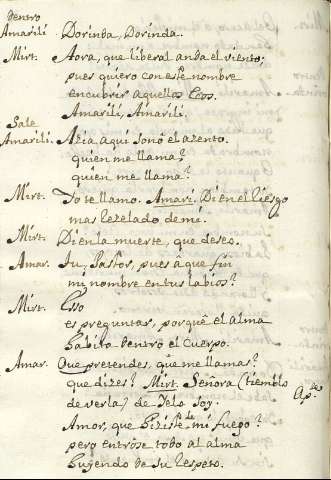 Dentro
Amarili Dorinda, Dorinda.
Mirt. Aora, que liberal anda el viento;
pues quiero con este nombre
encubrir aquellos Ecos.
Amarili, Amarili.
Sale
Amarili. Azia aquí sonó el azento.
quien me llama?
quien me llama?
Mirt. Yo te llamo. Amari. Di en el riesgo
mas rezelado de mi.
Mirt. Di en la muerte, que deseo.
Amar. Tu, Pastor, pues â que fin
mi nombre en tus labios?
Mirt. Esso
es preguntar, porquê el alma
habita dentro el cuerpo.
Amar. Que pretendes, que me llamas?
que dizes? Mirt. Señora (tiemblo Ap.
de verla) de Yelo soy.
Amor, que hiziste de mi fuego?
pero entróse todo al alma
huyendo de su respeto.